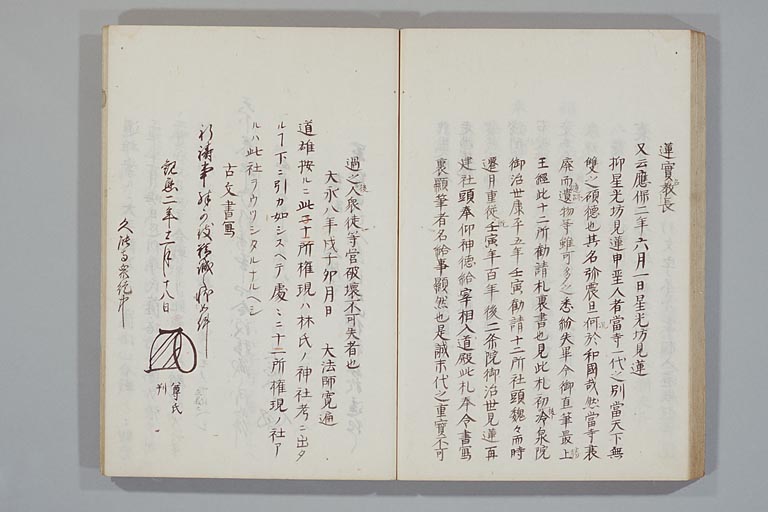 蓮實教長
又云應保二年六月一日星光坊見蓮
抑星光坊見蓮申聖人者當寺一代之別當天下無
雙之碩德也其名弥震旦何於和國哉然當寺衰
廃而遺物等雖可多之悉紛失畢今御直筆最上
王經此十二所勸請札裏書也見此札初冷泉院
御治世康平五年壬寅勸請十二所社頭魏々而時
遷月重従壬寅年百年後二条院御治世見蓮再
建社頭奉仰神德給宰相入道殿此札奉令書寫
裏顯筆者名給事顯然也是誠末代之重寶不可
過之人衆徒等官破壊不可失者也
大永八年戊子卯月日　大法師寛遍
道雄按ルニ此十二所権現ハ林氏ノ神社考ニ出タ
ルヿ下ニ引カ如シスヘテ處々ニ十二所権現ノ社ア
ルハ此社ヲウツシタルナルヘシ
古文書寫
観応二年十二月十八日
尊氏
判
久法寺衆徒中